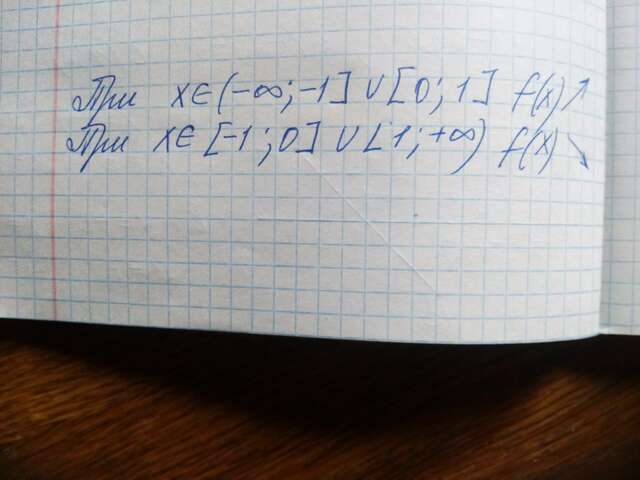 При x∈(-∞;-1]∪[0;1] f(x)↗
При x∈[-1;0]∪[1;+∞) f(x)↘